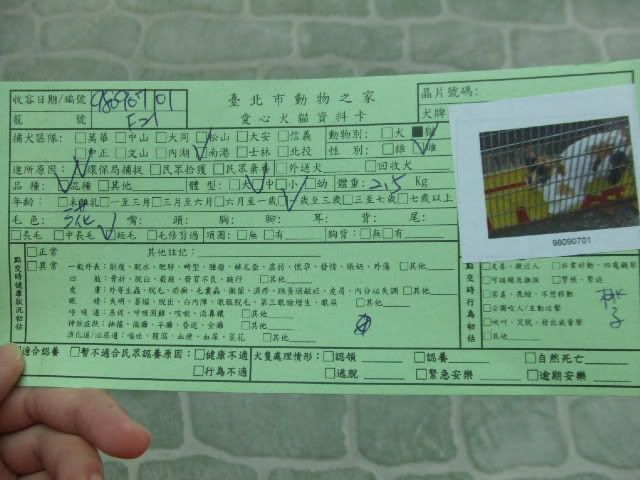 收容日期/編號 98090701 臺北市動物之家 晶片號碼:
籠 號 E21 愛心犬貓資料卡 犬牌
捕犬區隊: □萬華 □中山 □大同 □松山 □大安 □信義 動物別: □犬 ■貓
□中正 □文山 □內湖 □南港 □士林 □北投 性別: □雄 □雌
進所原因: □環保局捕捉 □民眾拾獲 □民眾棄養 □外送犬 □回收犬
品種: □混種 □其他 體型: □大 □中 □小 □幼 體重: 2.5 Kg
年齡: □未離乳 □一至三月 □三月至六月 □六月至一歲 □一歲至三歲 □三至七歲 □七歲以上
毛色: 三花 嘴: 頭: 胸: 腳: 耳: 背: 尾:
□長毛 □中長毛 □短毛 □毛修剪過 項圈: □無 □有 胸背: □無 □有
98090701
點交時健康狀況初估
□正常 其他註記:
□異常 一般外表: 削瘦、脫水、肥胖、畸型、腫瘤、梯毛蟲、虛弱、懷孕、發情、脹奶、外傷 □其他
四 肢: 骨折、脫臼、截肢、發育不良、跛行 □其他
皮 膚: 外寄生蟲、脫毛、搔癢、毛囊蟲、黴菌、濕疹、跳蚤過敏症、皮屑、內分泌失調 □其他
眼 睛: 失明、萎縮、脫出、白內障、眼瞼脫毛、第三眼瞼增生、眼屎 □其他
呼吸道: 急促、呼吸困難、咳嗽、流鼻膿 □其他
神經症狀: 抽搐、痛癱、半癱、昏迷、全癱 □其他
消化道/泌尿道: 嘔吐、腹瀉、血便、血尿、菜花 □其他
點交時行為初估
□友善、親近人 □非常好動、四處觀察
□可碰觸後撫摸 □緊張、緊迫
□害羞、畏縮、不想移動
□會團咬人/主動攻擊
□吠叫、哭號、發出威脅聲
□其他
桃子
適合認養 □暫不適合民眾認養原因: □健康不適 犬隻處理情形: □認領 □認養 □自然死亡
□行為不適 □逃脫 □緊急安樂 □逾期安樂